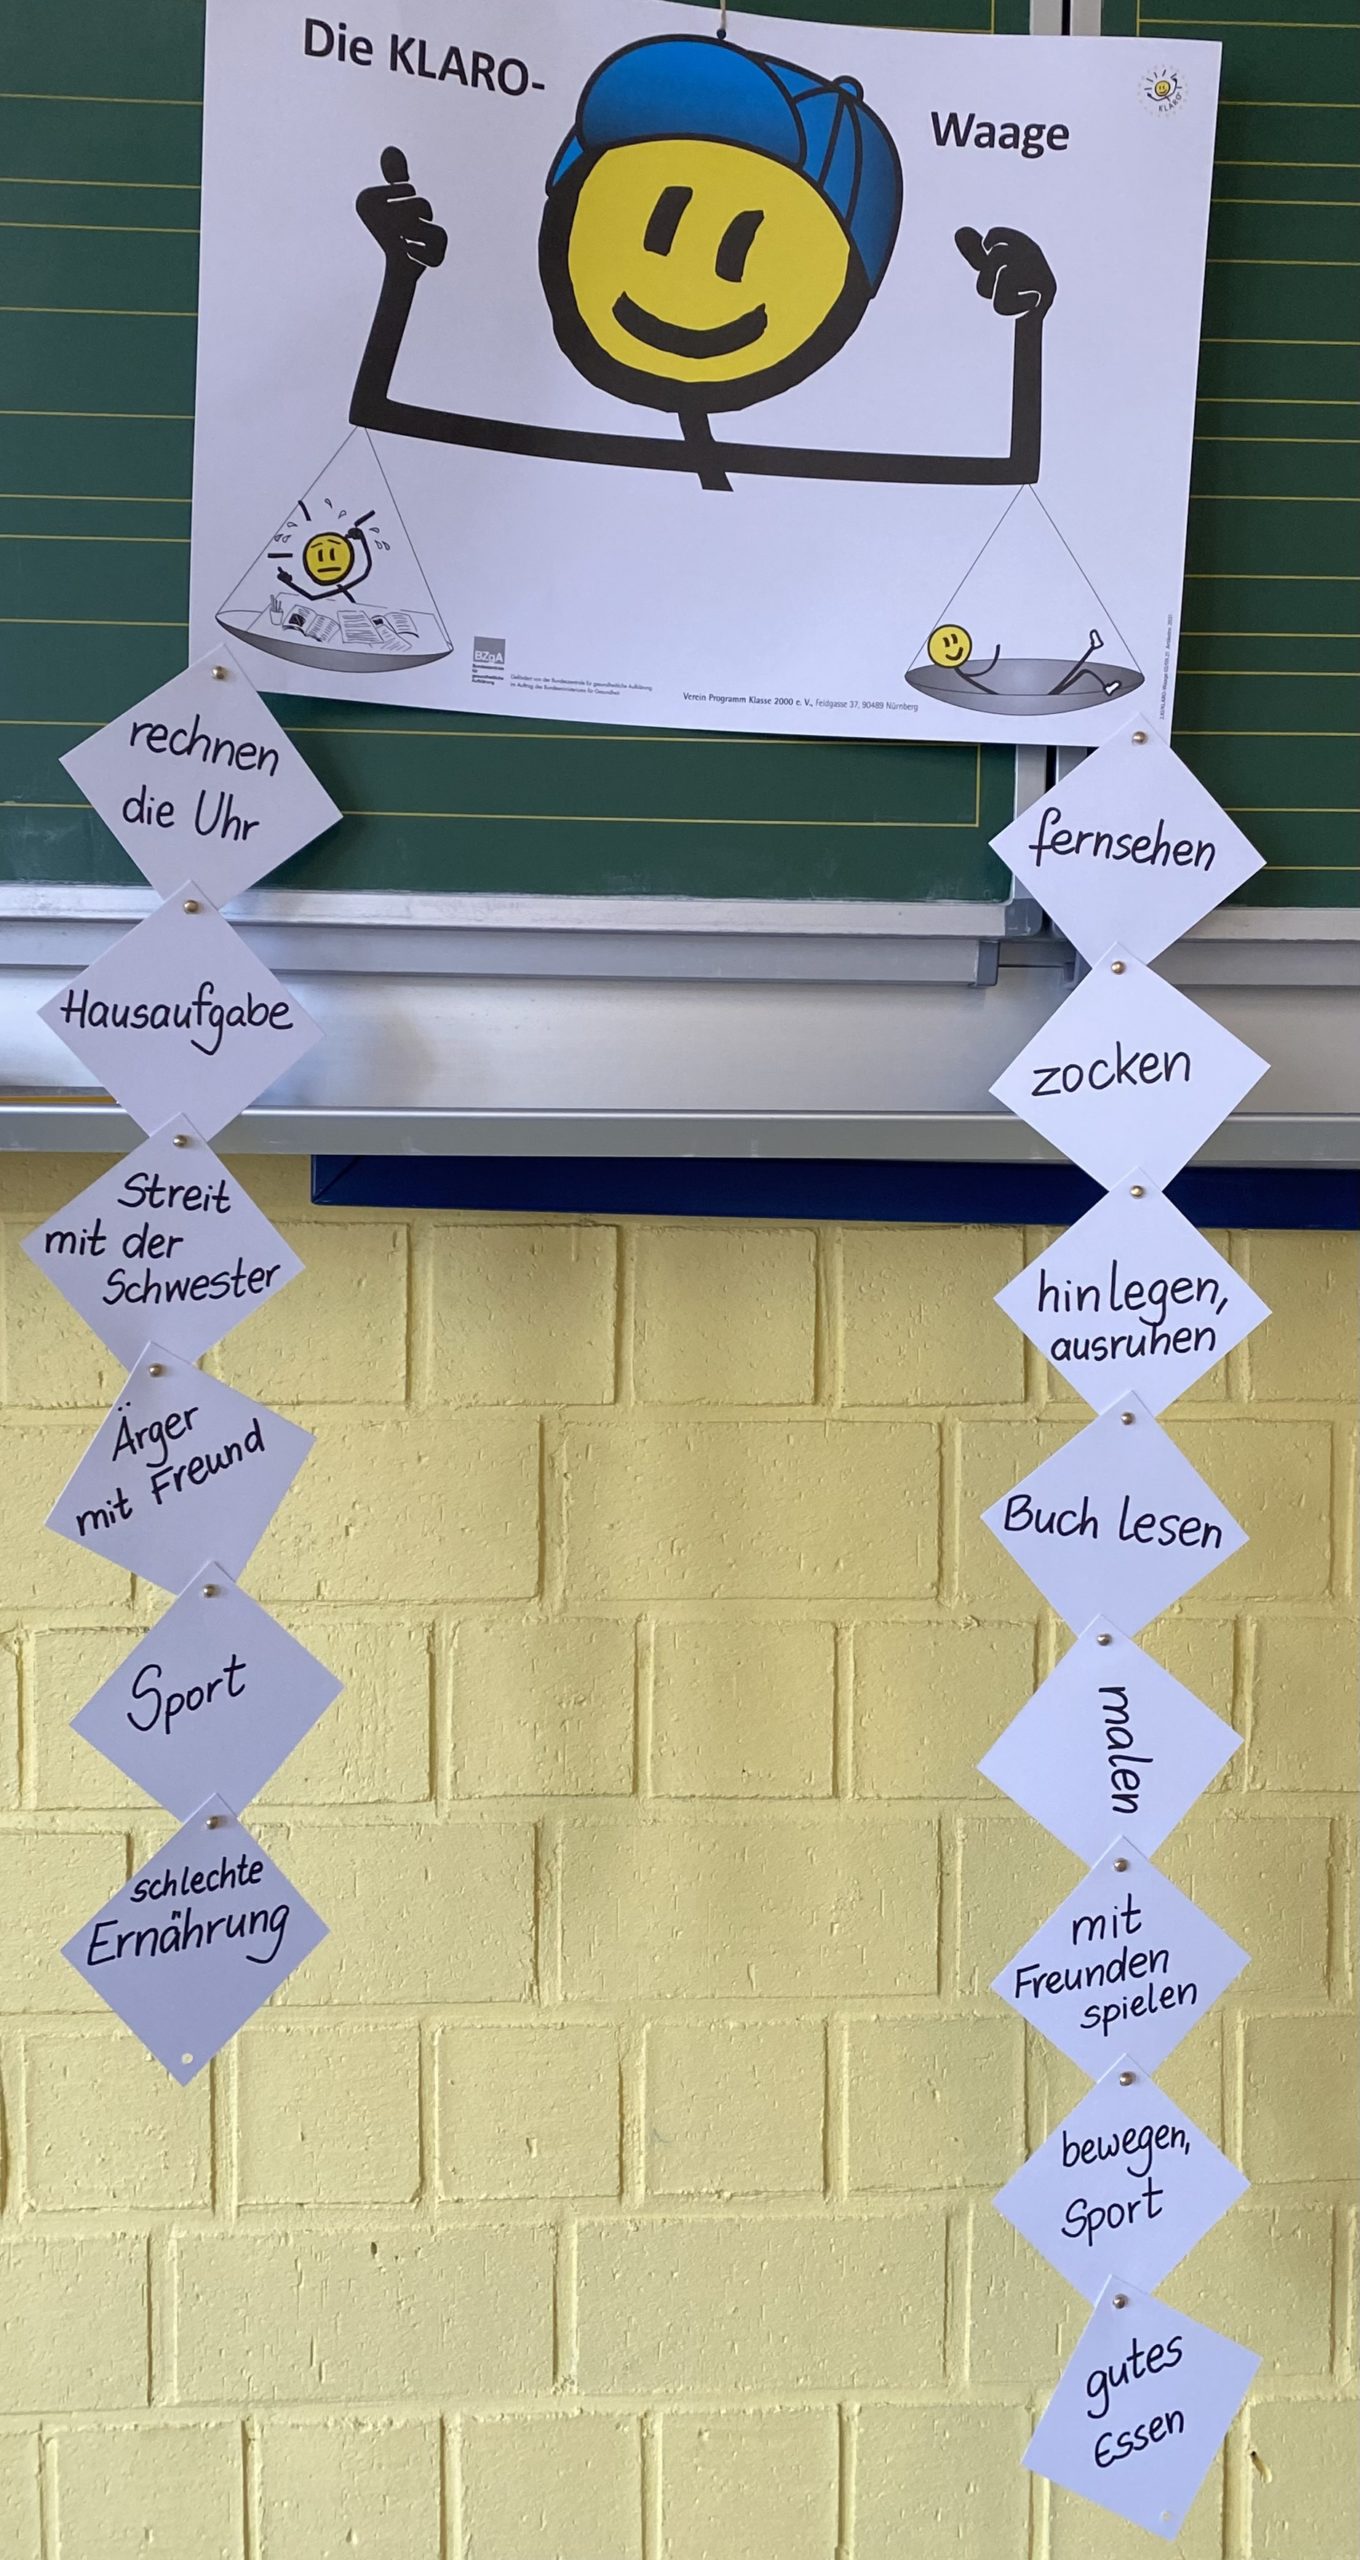 Die KLARO-
Waage
KLARO
BZgA
Bundeszentrale
für
gesundheitliche
Aufklärung
Gefördert von der Bundeszentrale für gesundheitliche Aufklärung
im Auftrag des Bundesministeriums für Gesundheit
Verein Programm Klasse 2000 e. V., Feldgasse 37, 90489 Nürnberg
rechnen
die Uhr
Hausaufgabe
Streit
mit der
Schwester
Ärger
mit Freund
Sport
schlechte
Ernährung
fernsehen
zocken
hinlegen,
ausruhen
Buch lesen
malen
mit
Freunden
spielen
bewegen,
Sport
gutes
Essen